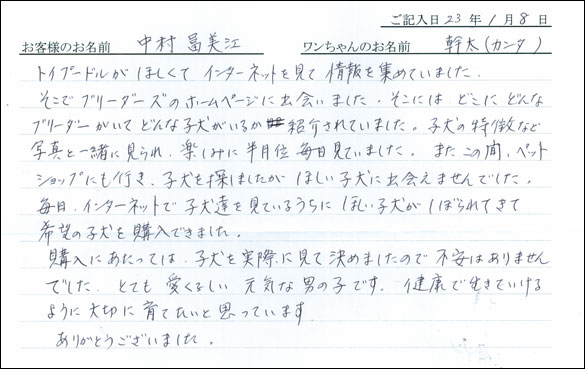 ご記入日 23 年 1 月 8 日
お客様のお名前 中村 冨美江 ワンちゃんのお名前 幹太(カンタ)
トイプードルが ほしくて インターネットを見て 情報を集めていました.
そこで ブリーダーズ の ホームページに 出会いました. そこには、どこに どんな
ブリーダーがいて どんな子犬がいるか 紹介されていました。子犬の特徴など
写真と一緒に見られ、楽しみに 半月位 毎日見ていました. また この間、ペット
ショップにも行き、子犬を探しましたが ほしい子犬に出会えませんでした.
毎日、インターネットで 子犬達を見ているうちに ほしい子犬が しぼられてきて
希望の子犬を購入できました。
購入にあたっては、子犬を実際に見て決めましたので 不安はありません
でした. とても 愛くるしい 元気な男の子です. 健康で生きていける
ように 大切に 育てたいと思っています.
ありがとうございました.